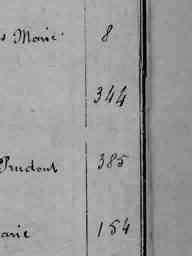 s Marie 8
344
Prudent 385
arie 154